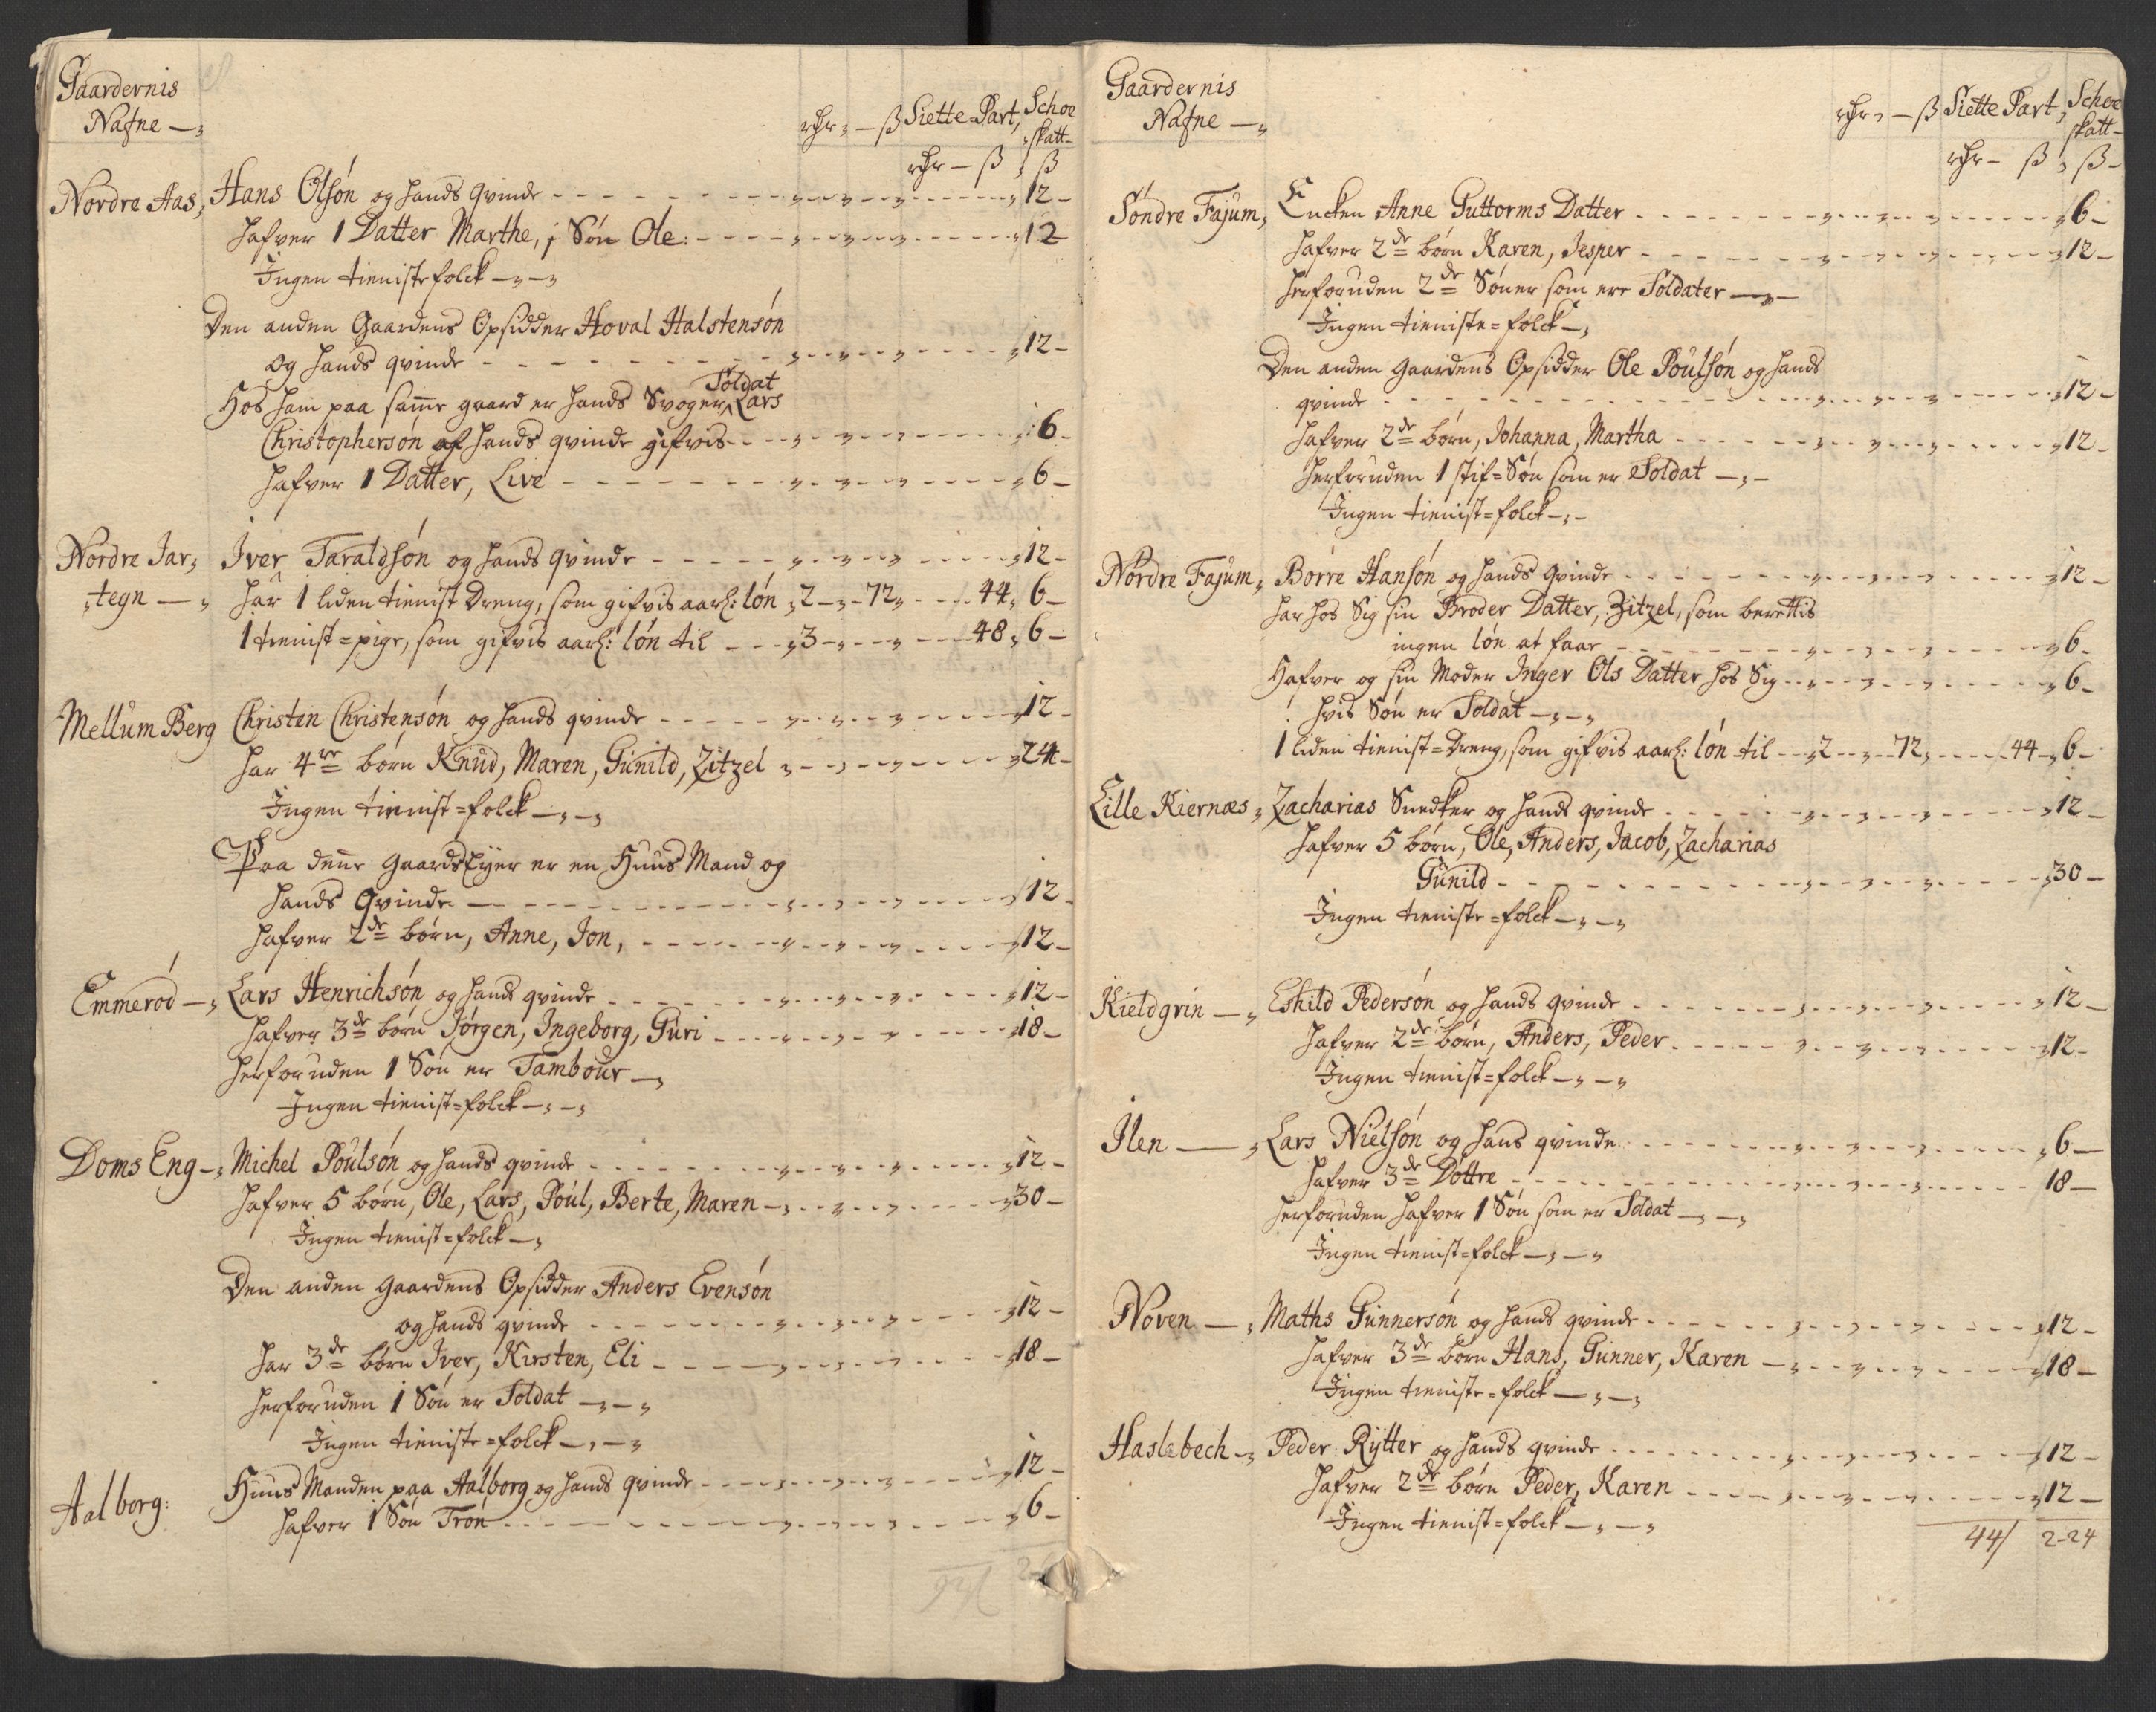 Gaardernis
Nafne
rdr - ß Siette Part, Schoe
skatt
rdr - ß ß
Nordre Aas, Hans Olsøn og hands qvinde 12
hafver 1 Datter Marthe, j Søn Ole: 12
Ingen tienistefolck
Den anden Gaardens Opsidder Hoval Halstensøn
og hands qvinde 12
Soldat
Hos ham paa samme gaard er hands Svoger Lars
Christophersøn af hands qvinde gifvis 6
hafver 1 Datter, Live 6
Nordre Iar- Iver Taraldsøn og hands qvinde 12
tegn har 1 liden tienist Dreng, som gifvis aarl: løn 2 - 72 44 6
1 tienist=pige, som gifvis aarl: løn til 3 48 6
Mellum Berg Christen Christensøn og hands qvinde 12
har 4re børn Knud, Maren, Gunild, Zitzel 24
Ingen tienist=folck
Paa denne Gaards Eyer er en Huus Mand og
hands Qvinde 12
hafver 2de børn, Anne, Jon, 12
Emmerød Lars Henrichsøn og hands qvinde 12
hafver 3de børn Jørgen, Ingeborg, Guri 18
herforuden 1 Søn er Tambour
Ingen tienist=folck
Doms Eng Michel Poulsøn og hands qvinde 12
hafver 5 børn, Ole, Lars, Poul, Berte, Maren 30
Ingen tienist=folck
Den anden Gaardens Opsidder Anders Evensøn
og hands qvinde 12
har 3de børn Iver, Kirsten, Eli 18
herforuden 1 Søn er Soldat
Ingen tieniste=folck
Aalborg: Huus Manden paa Aalborg og hands qvinde 12
hafver 1 Søn Tron 6
Gaardernis
Nafne
rdr - ß Siette Part, Schoe
skatt
rdr - ß ß
Søndre Fajum, Encken Anne Guttorms Datter 6
hafver 2de børn Karen, Jesper 12
herforuden 2de Søner som ere Soldater
Ingen tieniste=folck
Den anden Gaardens Opsidder Ole Poulsøn og hands
qvinde 12
hafver 2de børn, Johanna, Martha 12
herforuden 1 stif=Søn som er Soldat
Ingen tienist=folck
Nordre Fajum, Børre Hansøn og hands qvinde 12
har hos Sig sin Broder Datter, Zitzel, som berettis
ingen løn at faar 6
Hafver og sin Moder Inger Ols Datter hos Sig 6
hvis Søn er Soldat
1 liden tienist=Dreng, som gifvis aarl: løn til 2 72 44 6
Lille Kiernæs, Zacharias Snedker og hands qvinde 12
hafver 5 børn, Ole, Anders, Jacob, Zacharias
Gunild 30
Ingen tieniste=folck
Kieldgrin Eshild Pedersøn og hands qvinde 12
hafver 2de børn, Anders, Peder 12
Ingen tienist=folck
Ilen Lars Nielsøn og hans qvinde 6
hafver 3de Døttre 18
herforuden hafver 1 Søn som er Soldat
Ingen tienist=folck
Noven Maths Gunnersøn og hands qvinde 12
hafver 3de børn Hans, Gunner, Karen 18
Ingen tieniste=folck
Haslebech Peder Rytter og hands qvinde 12
hafver 2de børn Peder, Karen 12
Ingen tienist=folck
44/ 2-24